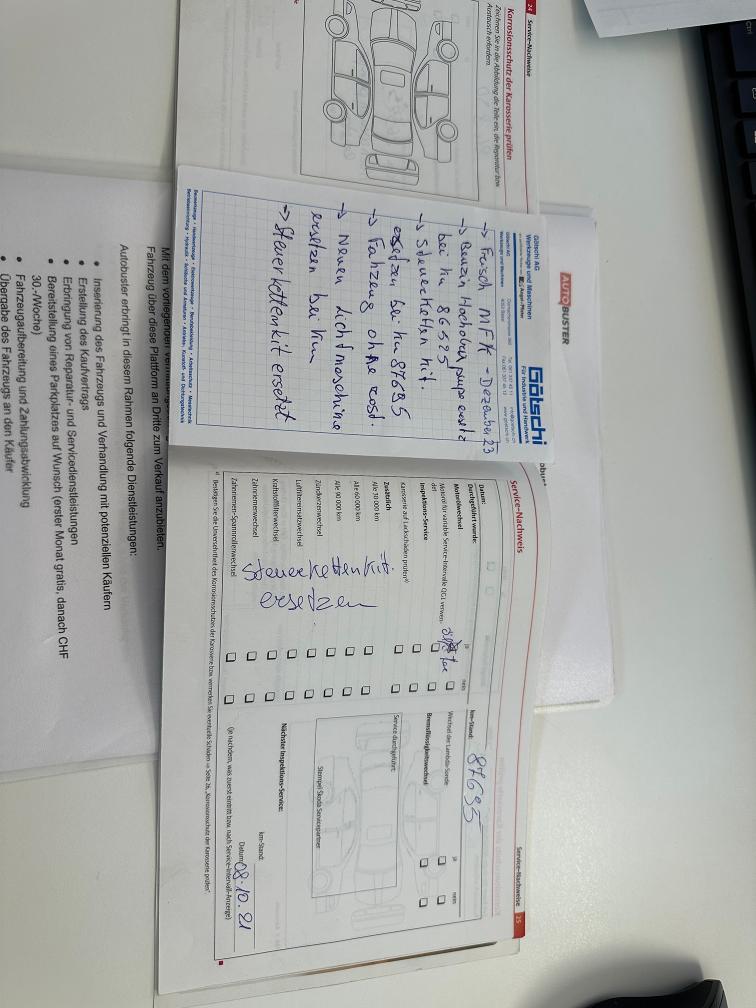 24 Service-Nachweise
Korrosionsschutz der Karosserie prüfen
Zeichnen Sie in die Abbildung die Teile ein, die Reparatur bzw.
Austausch erfordern.
AUTOBUSTER
Götschi AG
Werkzeuge und Maschinen
Götschi
Für Industrie und Handwerk
→ Frisch MFK - Dezember 23
→ Benzin Hochdruckpumpe ersetz
bei km 86525
→ Steuerketten kit.
ersetzen bei km 87695
→ Fahrzeug ohne rost.
→ Neuen Lichtmaschine
ersetzen bei km
→ Steuerkettenkit ersetzt
Mit dem vorliegenden
Fahrzeug über diese Plattform an Dritte zum Verkauf anzubieten.
Autobuster erbringt in diesem Rahmen folgende Dienstleistungen:
• Inserierung des Fahrzeugs und Verhandlung mit potenziellen Käufern
• Erstellung des Kaufvertrags
• Erbringung von Reparatur- und Servicedienstleistungen
• Bereitstellung eines Parkplatzes auf Wunsch (erster Monat gratis, danach CHF
30.-/Woche)
• Fahrzeugaufbereitung und Zahlungsabwicklung
• Übergabe des Fahrzeugs an den Käufer
Service-Nachweise 25
Service-Nachweis
Datum:
km-Stand: 87695
Durchgeführt wurde:
ja nein
ja nein
Motorölwechsel
Motoröl für variable Service-Intervalle (QG1 verwen-
det
Wechsel der Lambda-Sonde
Inspektions-Service
Bremsflüssigkeitswechsel
Karosserie auf Lackschäden prüfen
Zusätzlich
Alle 30 000 km
Alle 60 000 km
Alle 90 000 km
Zündkerzenwechsel
Luftfiltereinsatzwechsel
Kraftstofffilterwechsel
Zahnriemenwechsel
Zahnriemen-Spannrollenwechsel
Steuerkettenkit
ersetzen
Service durchgeführt:
Stempel Škoda Servicepartner
Nächster Inspektions-Service:
km-Stand:
Datum: 08.10.21
(je nachdem, was zuerst eintritt bzw. nach Service-Intervall-Anzeige)